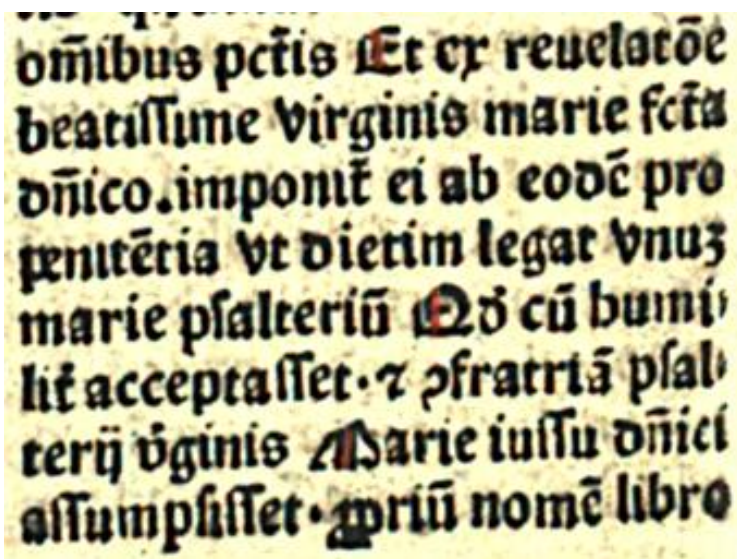 om̄ibus pct̄is Et ex reuelatōe
beatiſſime virginis marie fct̄a
dn̄ico.imponit̄ ei ab eodē pro
penitētia vt dietim legat vnuꝫ
marie pſalteriū Qd̓ cū humi
lit̄ acceptaſſet·⁊ ꝯfratriā pſal
terij v̄ginis Marie iuſſu dn̄ici
aſſumpſiſſet·ꝓpriū nomē libro